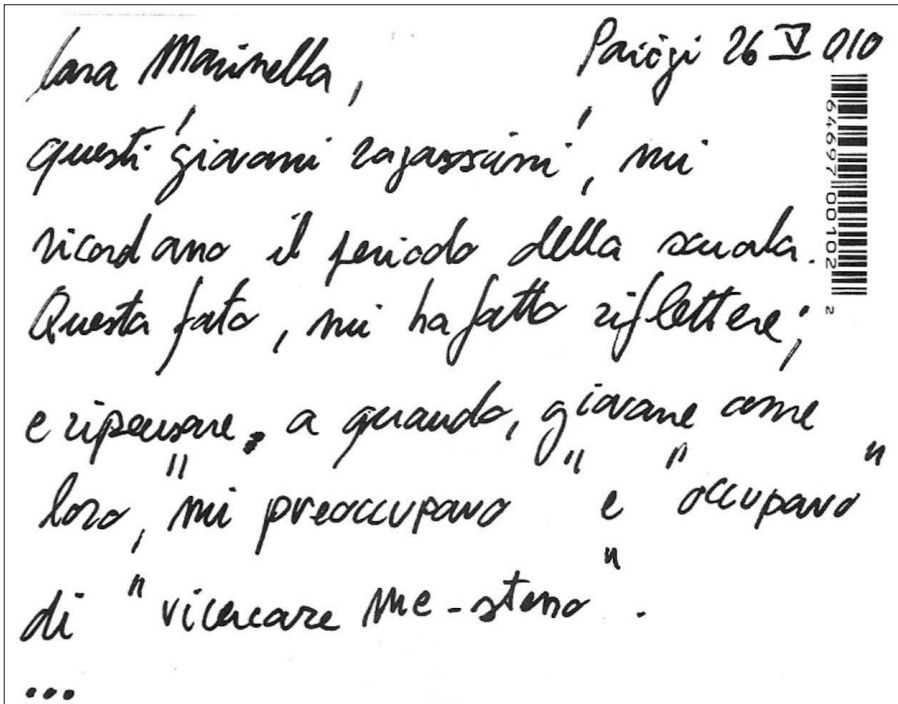 Cara Marinella, Parigi 26 V 010
questi 'giovani ragazzini', mi
ricordano il periodo della scuola.
Questa foto, mi ha fatto riflettere;
e ripensare, a quando, giovane come
loro, "mi preoccupavo" e "occupavo"
di "ricercare me-stesso".
...
64697 00102 2